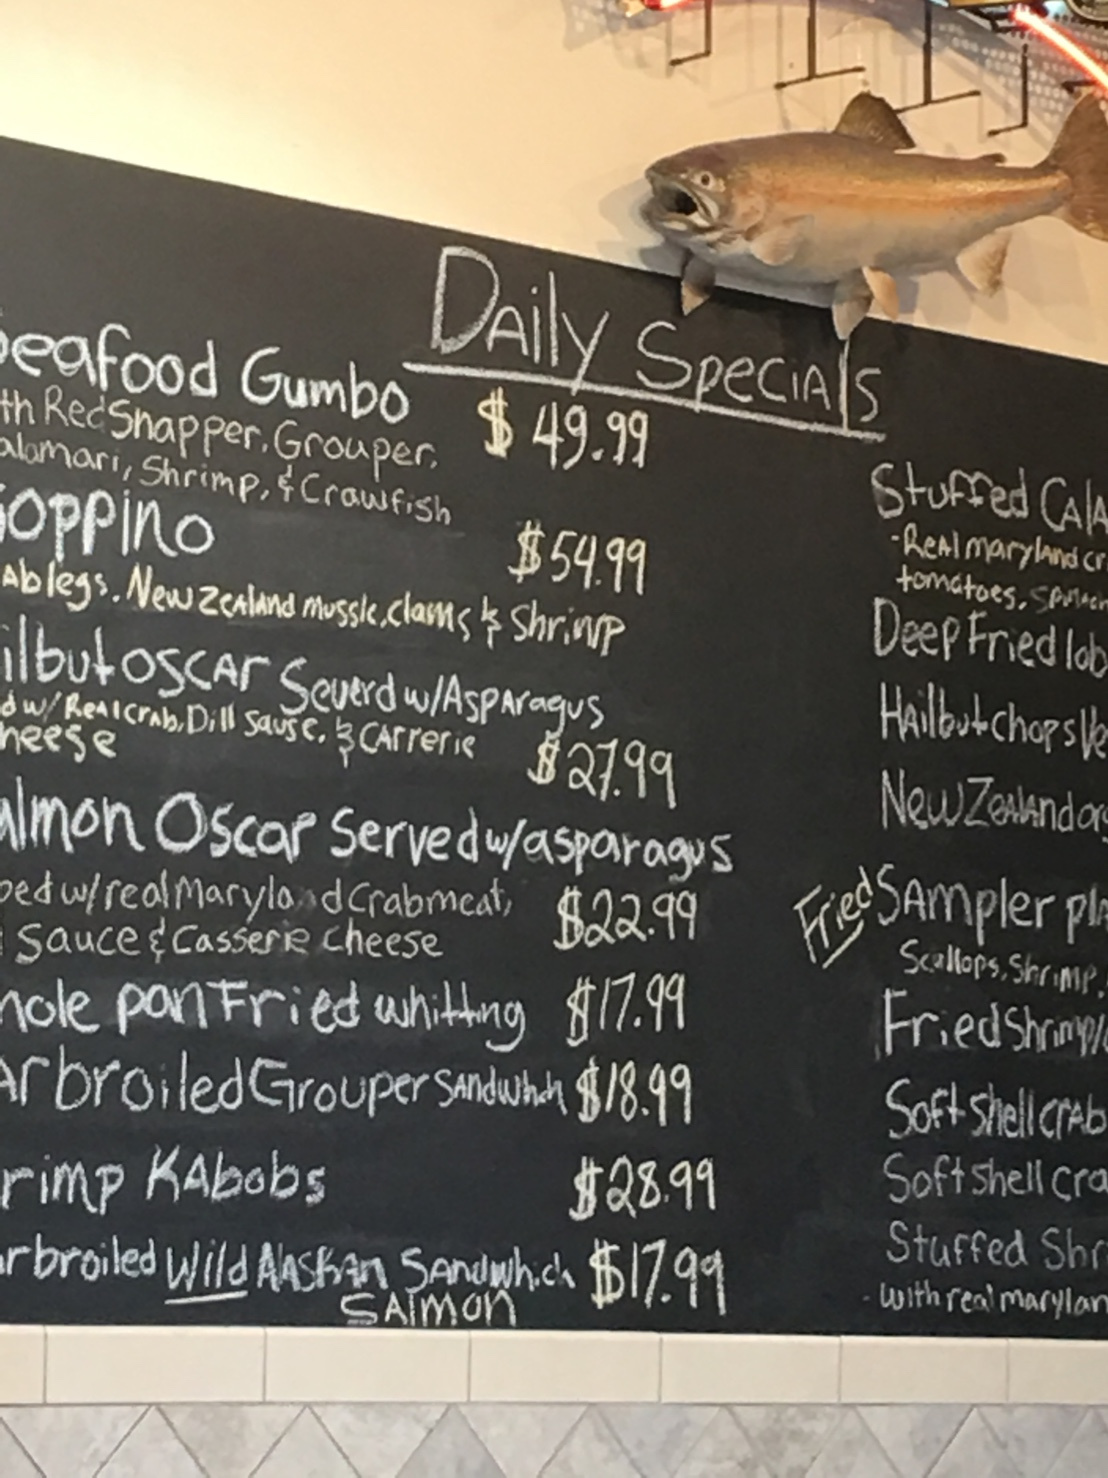 Daily Specials
Seafood Gumbo
$ 49.99
th Red Snapper, Grouper,
alamari, Shrimp, & Crawfish
ioppino
$54.99
Ab legs, New Zealand mussle, clams & Shrimp
ilbut oscar Severd w/Asparagus
d w/ Real crab, Dill sause, & CArrerie
heese
$27.99
almon Oscar Served w/asparagus
ped w/real Maryland Crabmeat,
$22.99
Sauce & Casserie cheese
hole pan Fried whitting $17.99
Arbroiled Grouper Sandwhich $18.99
rimp KAbobs $28.99
arbroiled Wild Alaskan Sandwhich $17.99
SAlmon
Stuffed CAlA
-Real maryland cr
tomatoes, Spinach
Deep Fried lob
HAilbut chops Ve
New ZeAlAnd
Fried SAmpler pla
Scallops, Shrimp,
Fried Shrimp/
Soft Shell crAb
Soft shell cra
Stuffed Shr
- with real marylan